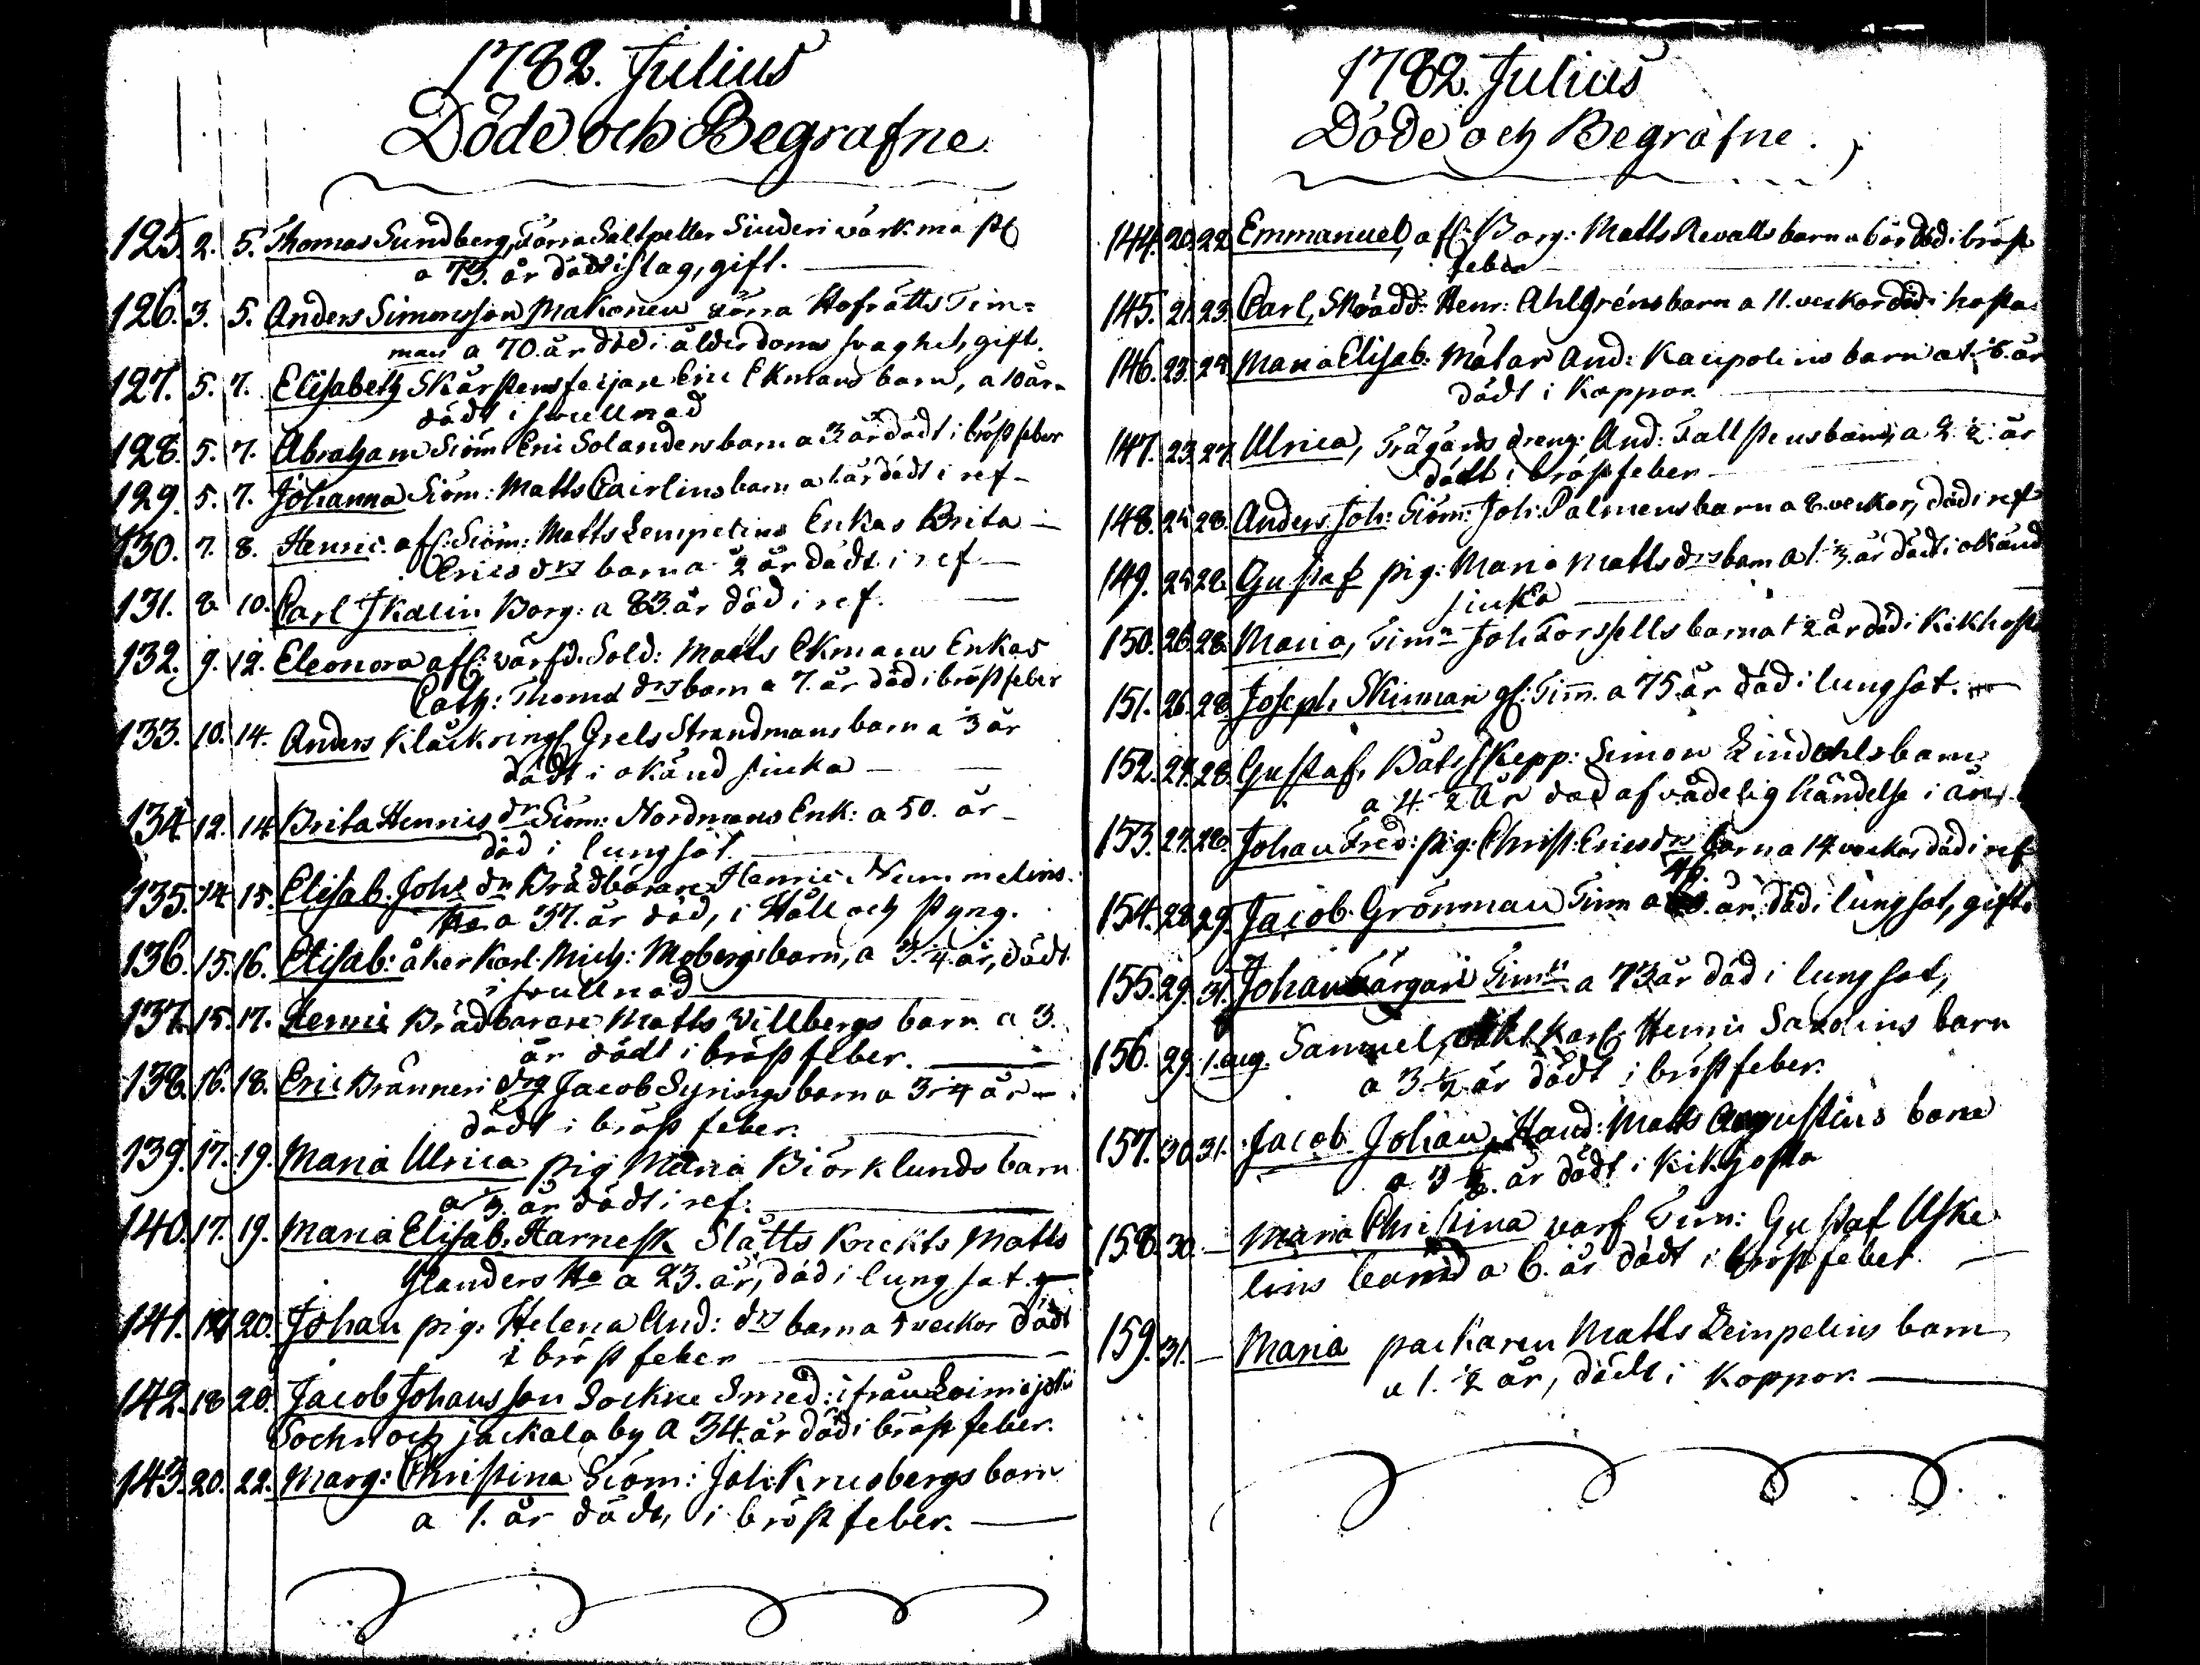 1782. Julius
Döde och Begrafne.
125. 2. 5. Thomas Sundberg, Förra Saltpetter Siuderi värk mäst:
a 73. år död i slag, gift.
126. 3. 5. Anders Simonsson Makonen förra Hofrätts Tim=
man a 70. år död i ålderdoms svaghet, gift.
127. 5. 7. Elisabeth Skårstensfeijare Eric Ekmans barn, a 10 år
dödt i svullnad
128. 5. 7. Abraham Siöm Eric Solanders barn a 3 år dödt i bröst feber
129. 5. 7. Johanna Siöm: Matts Cairlins barn a 1 år dödt i ref
130. 7. 8. Henric afl: Siöm: Matts Lempelins Enkas Brita
Erics drs barn a 2 år dödt i ref
131. 8. 10. Carl Skalin Borg: a 83. år död i ref.
132. 9. 12. Eleonora afl: värfd. Sold: Matts Ekmans Enkas
Cath: Thomæ drs barn a 7. år död i bröst feber
133. 10. 14. Anders Klåckrings Grels Strandmans barn a 3 år
dödt i okänd siuka
134. 12. 14. Brita Henrics dr Siöm: Nordmans Enk: a 50. år
död i lungsot.
135. 14. 15. Elisab. Johs dr Brädbärare Henric Nummelins
Ha a 37. år död, i Håll och styng.
136. 15. 16. Elisab: åker Karl. Mich: Mobergs barn, a 3/4. år, dödt
i svullnad
137. 15. 17. Henric Brädbärare Matts Villbergs barn a 3.
år dödt i bröst feber.
138. 16. 18. Eric Bränneri drg Jacob Syrings barn a 3/4 år
dödt i bröst feber.
139. 17. 19. Maria Ulrica pig Maria Biörklunds barn
a 1/3. år dödt i ref.
140. 17. 19. Maria Elisab. Harnesk Slåtts Knekts Matts
Glanders Ha a 23. år, död i lungsot.
141. 20. Johan pig: Helena And: drs barn a 5 veckor dödt
i bröst feber
142. 18 20. Jacob Johansson Sockne Smed: ifrån Loimijoki
Sochn och jackala by a 34. år död i bröst feber.
143. 20. 22. Marg: Christina Siöm: Joh: Krusbergs barn
a 1. år dödt, i bröst feber.
1782. Julius
Döde och Begrafne.
144. 20. 22. Emmanuel, afl: Borg: Matts Revalls barn a 6 år död i bröst
feber
145. 21. 23. Carl, Skrädd: Henr: Ahlgréns barn a 11. veckor död i hosta
146. 23. 24. Maria Elisab. Målar And: Kaupolins barn a 1. år
dödt i Koppor.
147. 23. 27. Ulrica, Trägårds dreng: And: Fallstens barn, a 2 1/2. år
dödt i bröst feber
148. 25 28. Anders Joh: Siöm: Joh: Palmens barn a 8. veckor, död i ref
149. 25 28. Gustaf pig: Maria Matts drs barn a 1. 1/3. år dödt i okänd
siuka
150. 26. 28. Maria, Timn Joh Forssells barn a 1 1/2 år död i Kikhosta
151. 26. 28. Joseph Skinnari gl: Timm. a 75 år död i lungsot.
152. 27. 28. Gustaf, Båts Skepp: Simon Lindahls barn
a 4 1/2 år död af vådelig händelse i ån,
153. 27. 28. Johan Fred: pig: Christ: Erics drs barn a 14 veckor död i ref
154. 28. 29. Jacob Grönman Timm a 46. år, död i lungsot, gift.
155. 29. 31. Johan Färgari Timn a 73 år död i lungsot,
156. 29. 1. aug. Samuel, Karl Henric Saxelins barn
a 3. 1/2 år dödt i bröst feber.
157. 30. 31. Jacob Johan, Hand: Matts Augustins barn
a 3 år dödt i Kikhosta
158. 30. Maria Christina varf Tim: Gustaf Uske
lins barn a 6. år dödt i bröst feber.
159. 31. Maria packaren Matts Lempelins barn
a 1. 1/2 år, dödt i Koppor.